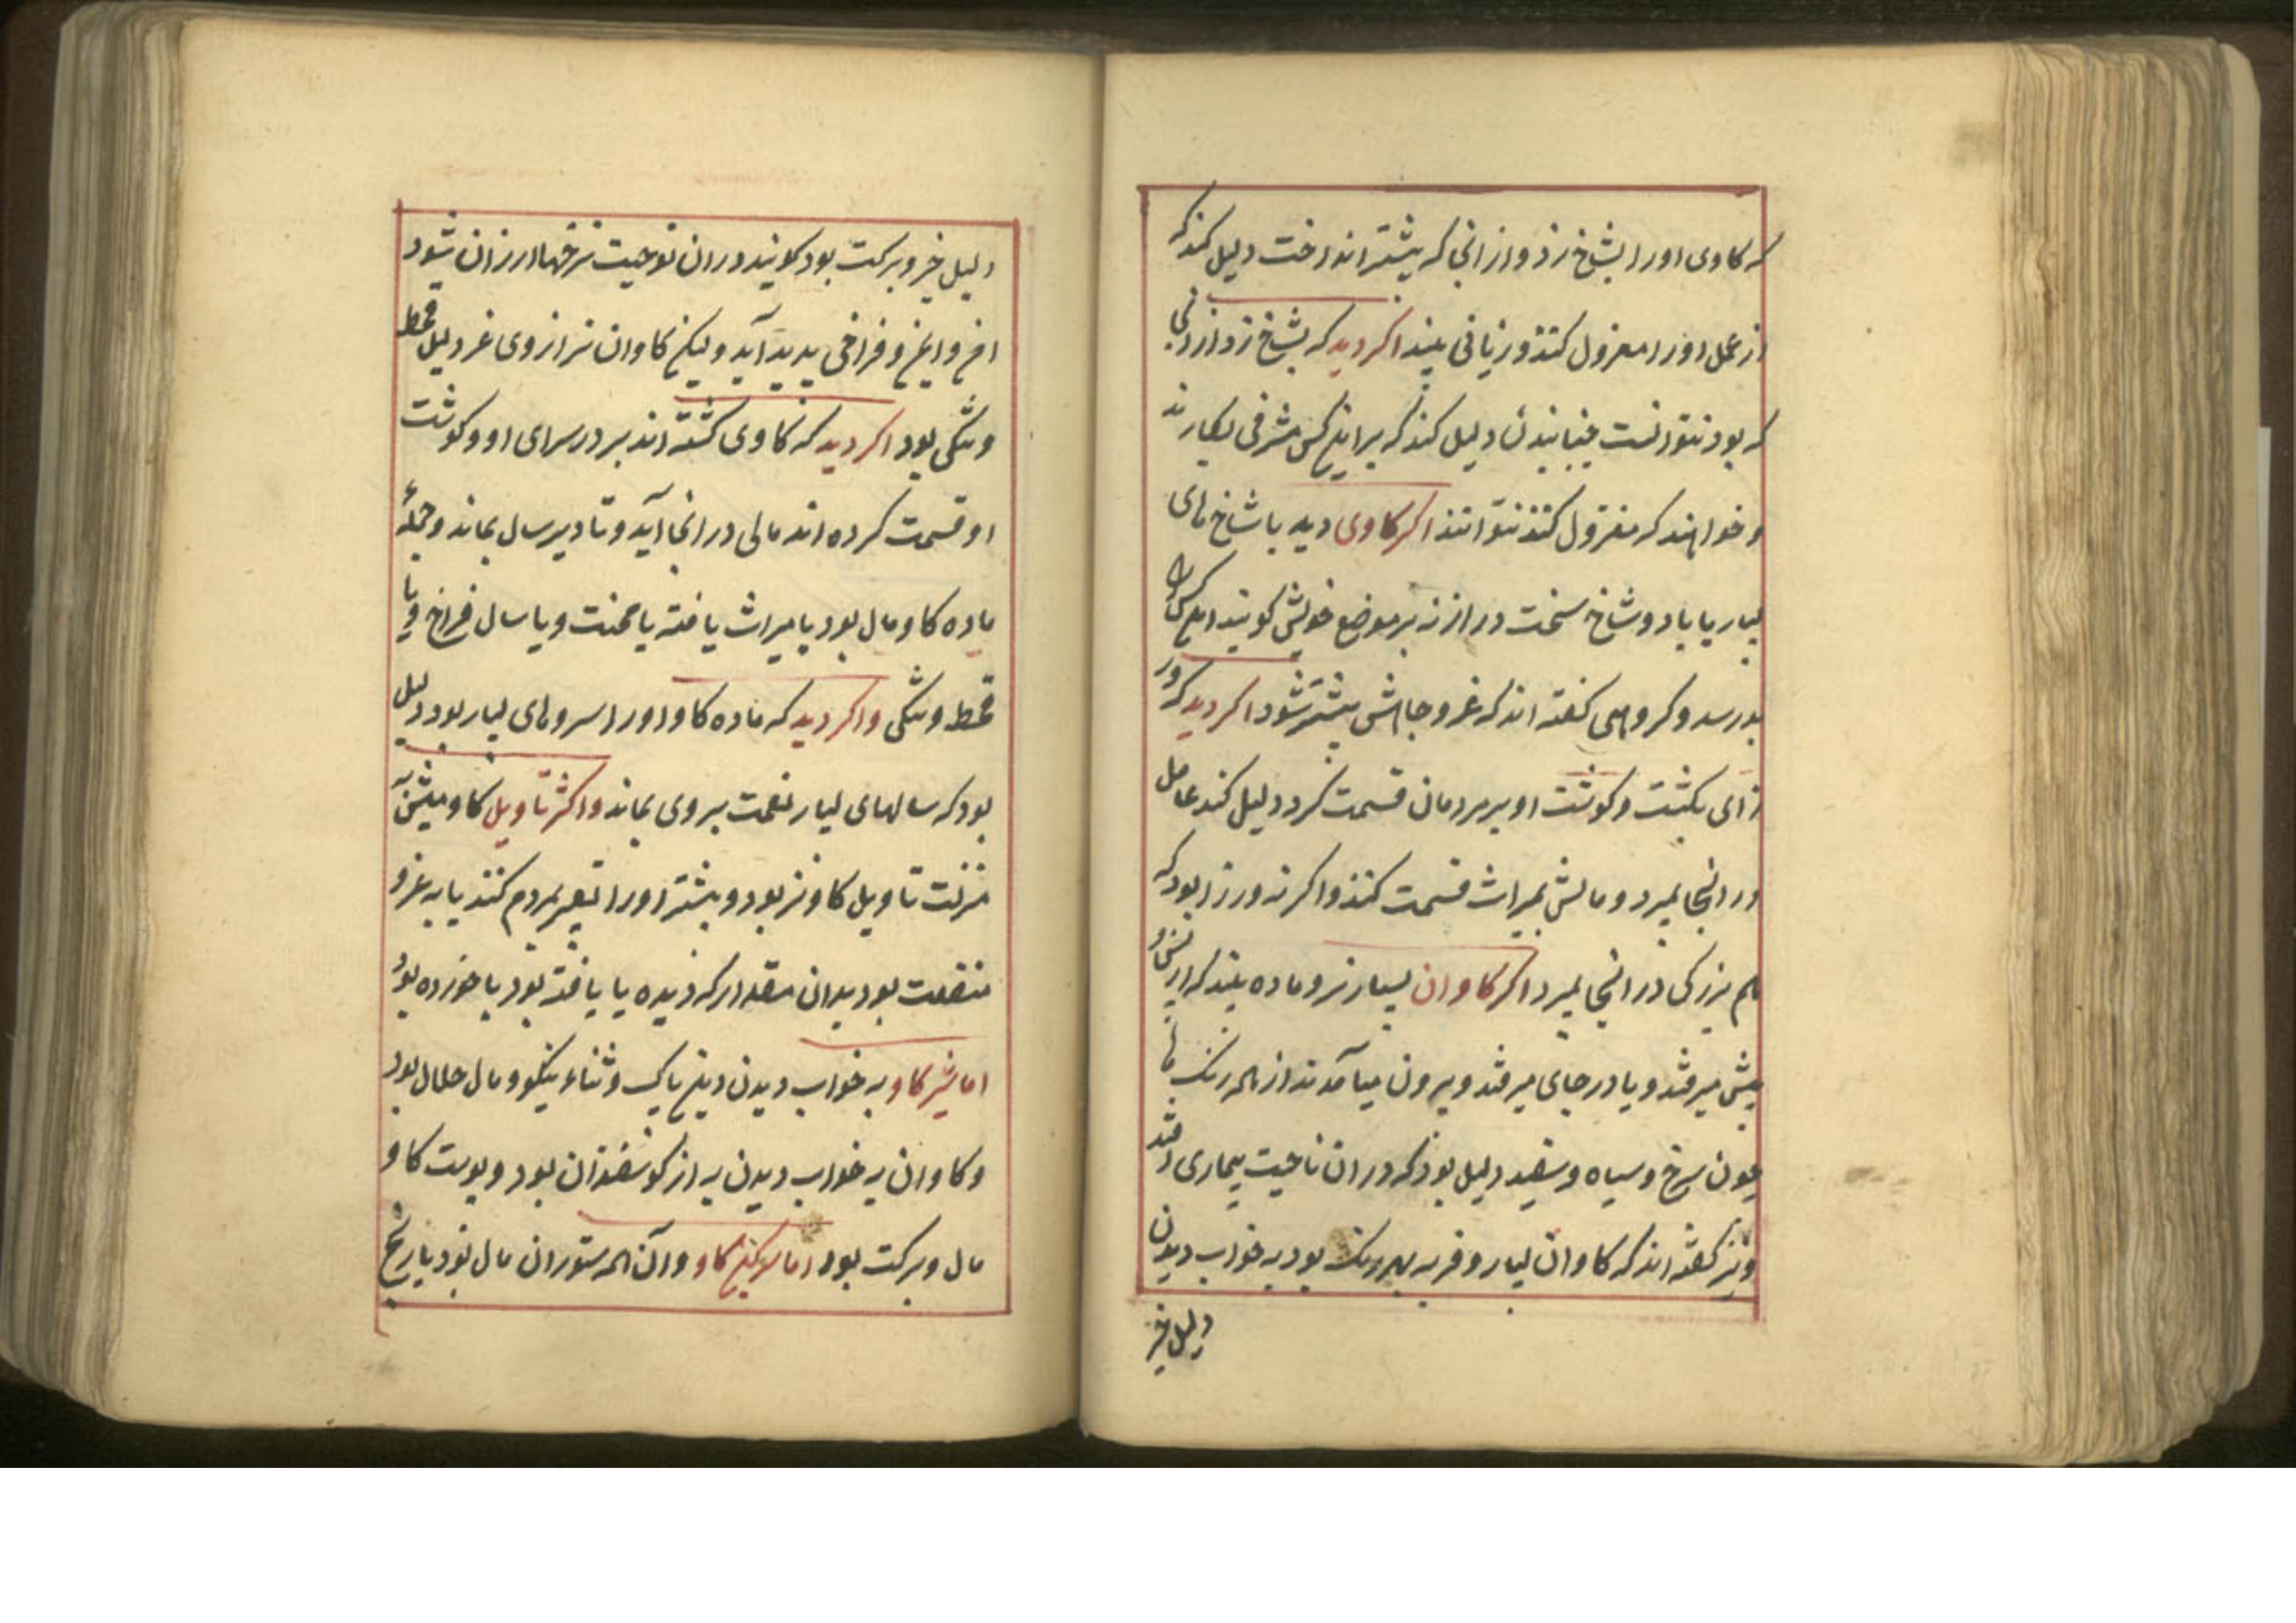 که کاوی اورا بشاخ زد و از انجا که بیشتر انداخت دلیل کند که
از عمل اورا معزول کنند و زیانی بیند اکر دید که بشاخ زد از انجا
که بود نتوانست جنبانیدن دلیل کند که براین کس مشرفی بکار ند
و خواهند که معزول کنند نتوانند اکر کاوی دید با شاخ های
بسیار یا با دو شاخ سخت دراز نه بر موضع خویش کویند این کس را
بد رسد و کروهی کفته اند که عز و جاهش بیشتر شود اکر دید که ور
زای بکشت و کوشت او بر مردمان قسمت کرد دلیل کند عامل
در انجا بمیرد و مالش بمیراث قسمت کنند و اکر نه ورزا بود که
هم بزرکی در انجا بمیرد اکر کاوان بسیار نر و ماده بیند که از پس و
پیش میرفتند و یا در جای میرفتند و بیرون میآمدند از همه رنک ها
چون سرخ و سیاه و سفید دلیل بود که در ان ناحیت بیماری افتد
و نیز کفته اند که کاوان بسیار و فربه بهر رنک بود به خواب دیدن
دلیل خیر
دلیل خیر و برکت بود کویند در ان نوحیت نرخها ارزان شود
و فراخی پدید آید و لیکن کاوان نر از وی غر دلیل قحط
و تنکی بود اکر دید که کاوی کشته اند بر در سرای او و کوشت
او قسمت کرده اند مالی در انجا آید و تا دیر سال بماند و جملهٔ
ماده کاو مال بود یا میراث یافته یا محنت و یا سال فراخ و یا
قحط و تنکی و اکر دید که ماده کاو اورا سروهای بسیار بود دلیل
بود که سالهای بسیار نعمت بروی بماند و اکثر تاویل کاومیش به
منزلت تاویل کاو نر بود و بیشتر اورا تعبیر بمردم کنند یا به عز و
منفعت بود بدان مقدار که دیده یا یافته بود یا خورده بود
اما شیر کاو به خواب دیدن دین پاک و ثناء نیکو و مال حلال بود
و کاوان به خواب دیدن به از کوسفندان بود و پوست کاو
مال و برکت بود اما سرکین کاو و آن همه ستوران مال بود یا رنج